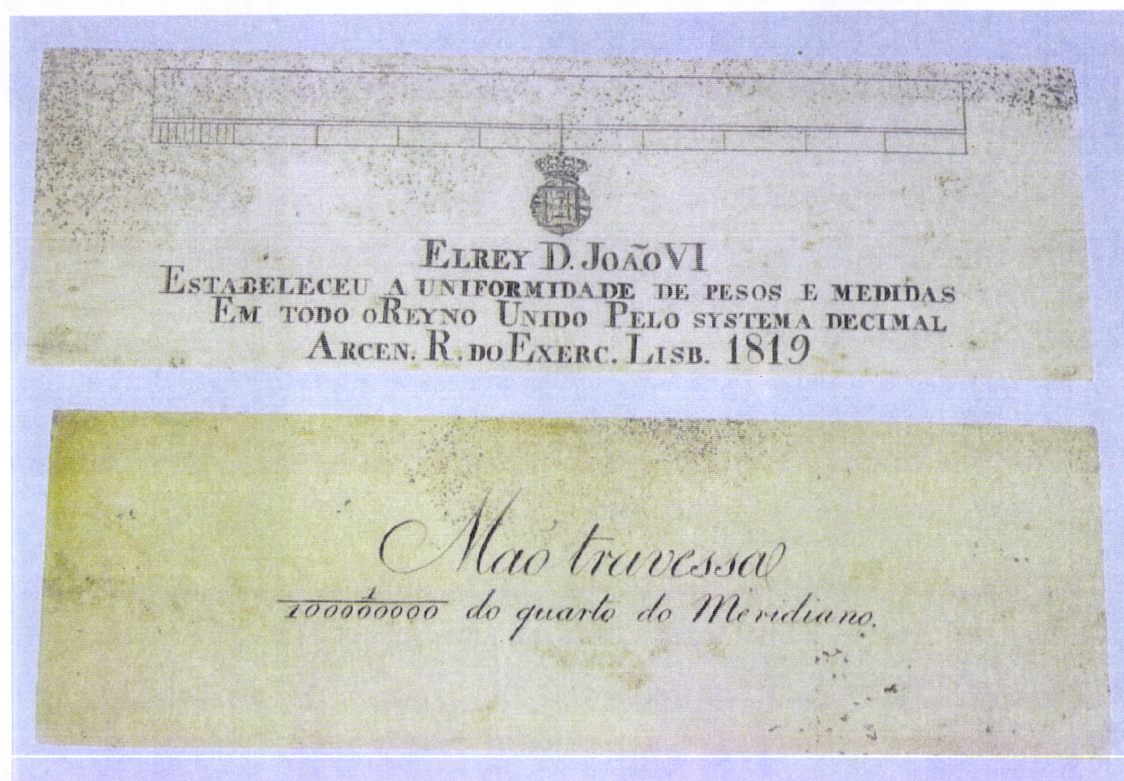 ELREY D. JOÃO VI
ESTABELECEU A UNIFORMIDADE DE PESOS E MEDIDAS
EM TODO O REYNO UNIDO PELO SYSTEMA DECIMAL
ARCEN. R. DO EXERC. LISB. 1819
Mão travessa
1/100000000 do quarto do Meridiano.